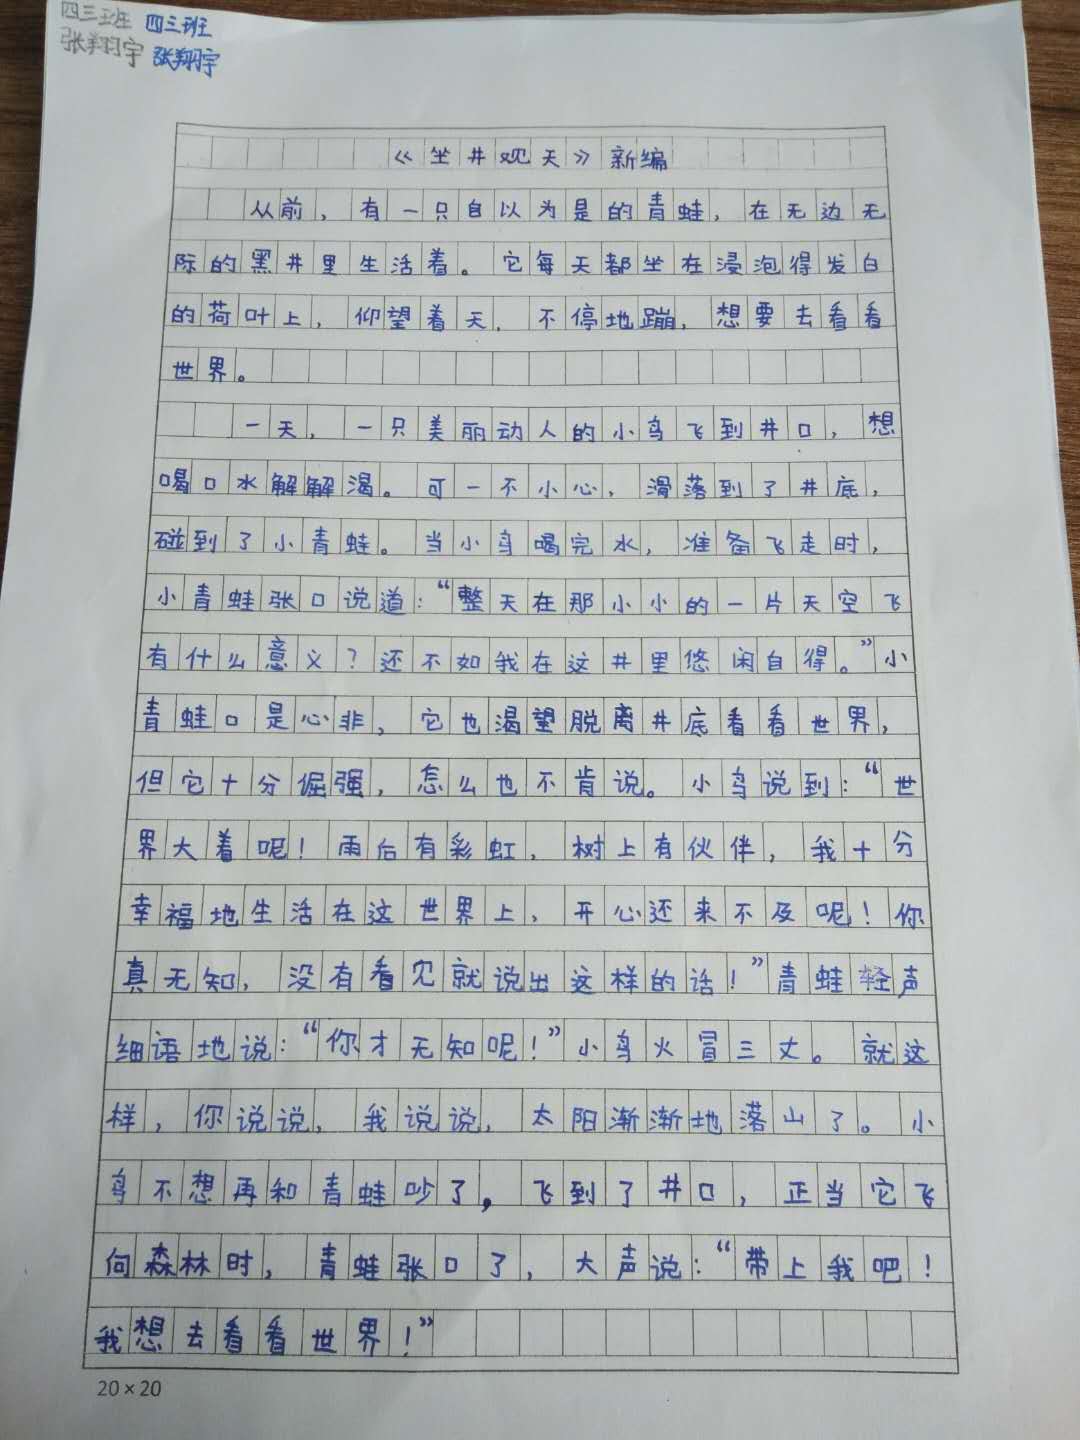 四三班 四三班
张翔宇 张翔宇
《坐井观天》新编
从前，有一只自以为是的青蛙，在无边无
际的黑井里生活着。它每天都坐在浸泡得发白
的荷叶上，仰望着天，不停地蹦，想要去看看
世界。
一天，一只美丽动人的小鸟飞到井口，想
喝口水解解渴。可一不小心，滑落到了井底，
碰到了小青蛙。当小鸟喝完水，准备飞走时，
小青蛙张口说道：“整天在那小小的一片天空飞
有什么意义？还不如我在这井里悠闲自得。”小
青蛙口是心非，它也渴望脱离井底看看世界，
但它十分倔强，怎么也不肯说。小鸟说到：“世
界大着呢！雨后有彩虹，树上有伙伴，我十分
幸福地生活在这世界上，开心还来不及呢！你
真无知，没有看见就说出这样的话！”青蛙轻声
细语地说：“你才无知呢！”小鸟火冒三丈。就这
样，你说说，我说说，太阳渐渐地落山了。小
鸟不想再和青蛙吵了，飞到了井口，正当它飞
向森林时，青蛙张口了，大声说：“带上我吧！
我想去看看世界！”
20×20